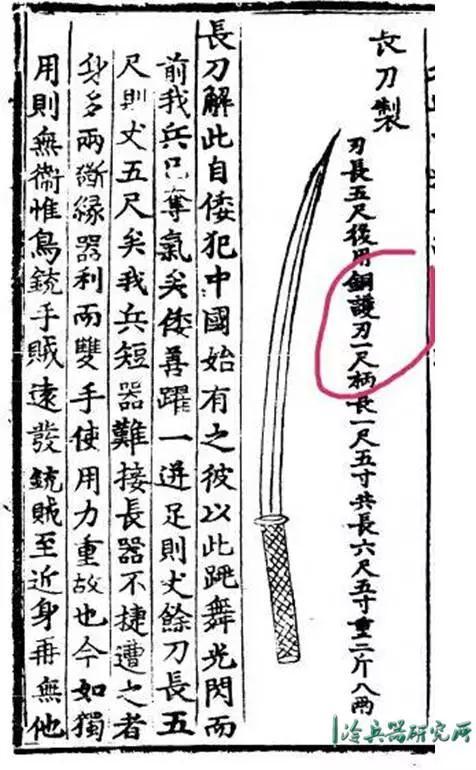 長刀製
刃長五尺後用銅護刃一尺柄長一尺五寸共長六尺五寸重二斤八兩
長刀解此自倭犯中國始有之彼以此跳舞光閃而
前我兵已奪氣矣倭善躍一迸足則丈餘刀長五
尺則丈五尺矣我兵短器難接長器不捷遭之者
身多兩斷緣器利而雙手使用力重故也今如獨
用則無衛惟鳥銃手賊遠發銃賊至近身再無他
冷兵器研究所